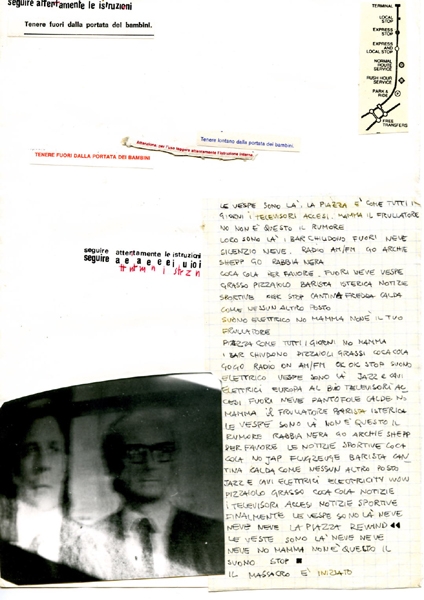 seguire attentamente le istruzioni
Tenere fuori dalla portata dei bambini.
TERMINAL
LOCAL STOP
EXPRESS STOP
EXPRESS AND LOCAL STOP
NORMAL HOURS SERVICE
RUSH HOUR SERVICE
PARK & RIDE
FREE TRANSFERS
Tenere lontano dalla portata dei bambini.
Attenzione: per l'uso leggere attentamente l'istruzione interna
TENERE FUORI DALLA PORTATA DEI BAMBINI
seguire attentamente le istruzioni
seguire a e a e e e i, u i o i
tt nt m n i str z n
LE VESPE SONO LÀ, LA PIAZZA È COME TUTTI I
GIORNI I TELEVISORI ACCESI. MAMMA IL FRULLATORE
NO NON È QUESTO IL RUMORE
LORO SONO LÀ I BAR CHIUDONO FUORI NEVE
SILENZIO NEVE. RADIO AM/FM GO ARCHIE
SHEPP GO RABBIA NERA
COCA COLA PER FAVORE. FUORI NEVE VESPE
GRASSO PIZZAIOLO BARISTA ISTERICA NOTIZIE
SPORTIVE OK STOP CANTINA FREDDA CALDA
COME NESSUN ALTRO POSTO
SUONO ELETTRICO NO MAMMA NON È IL TUO
FRULLATORE
PIAZZA COME TUTTI I GIORNI NO MAMMA
I BAR CHIUDONO PIZZAIOLI GRASSI COCA COLA
GO GO RADIO ON AM/FM OK OK STOP SUONO
ELETTRICO VESPE SONO LÀ JAZZ E CAVI
ELETTRICI EUROPA AL BIO TELEVISORI AC
CESI FUORI NEVE PANTOFOLE CALDE NO
MAMMA IL FRULLATORE BARISTA ISTERICA
LE VESPE SONO LÀ NON È QUESTO IL
RUMORE RABBIA NERA GO ARCHIE SHEPP
PER FAVORE LE NOTIZIE SPORTIVE COCA
COLA NO JAP FLUGZEUGE BARISTA CAN
TINA CALDA COME NESSUN ALTRO POSTO
JAZZ E CAVI ELETTRICI ELECTRICITY WOW
PIZZAIOLO GRASSO COCA COLA NOTIZIE
I TELEVISORI ACCESI NOTIZIE SPORTIVE
FINALMENTE LE VESPE SONO LÀ NEVE
NEVE NEVE LA PIAZZA REWIND ◄◄
LE VESTE SONO LÀ NEVE NEVE
NEVE NO MAMMA NON È QUESTO IL
SUONO STOP ■
IL MASSACRO È INIZIATO